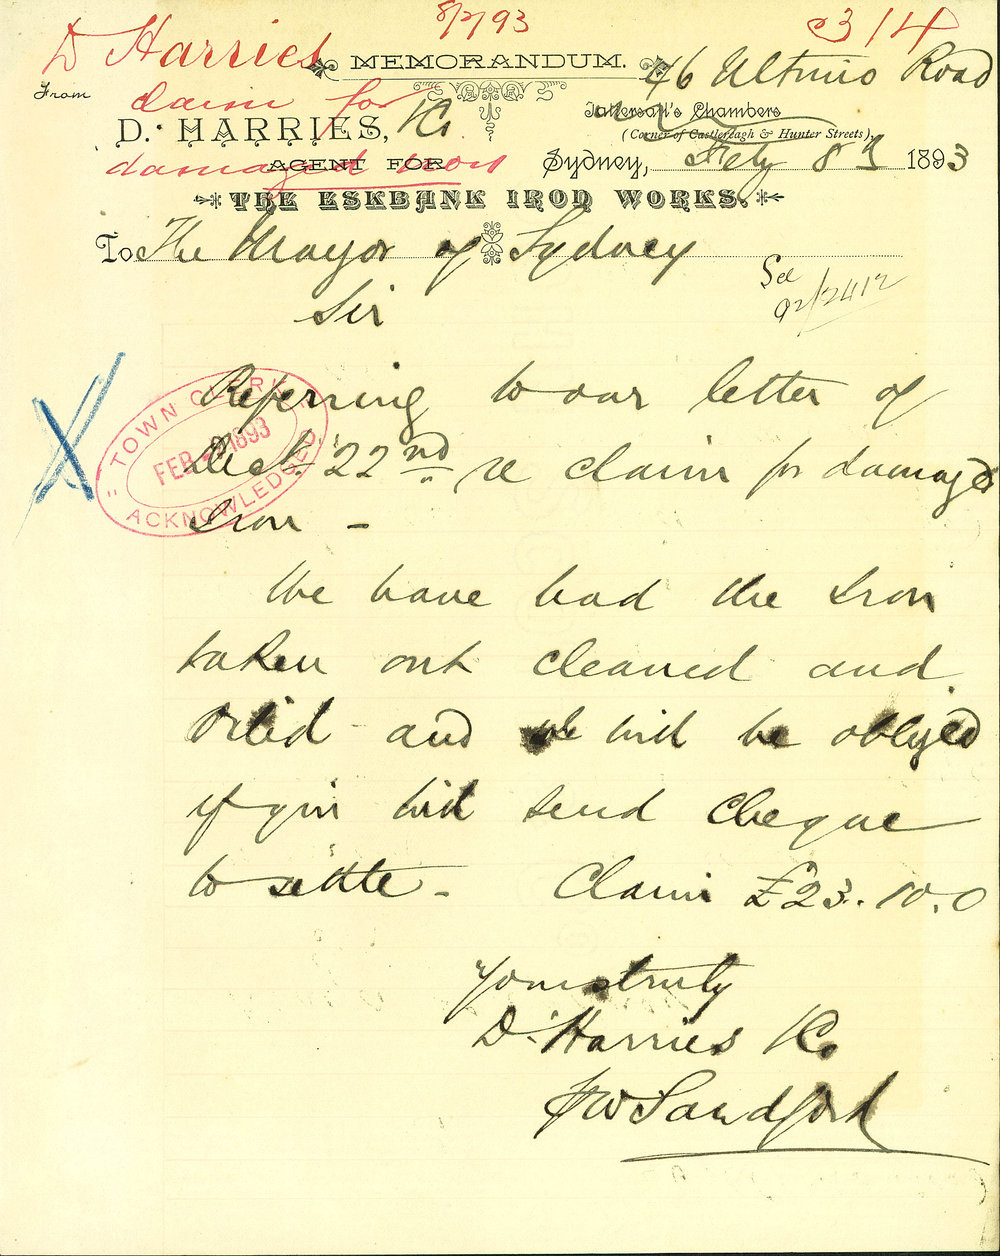 D Harries
8/2/93
314
MEMORANDUM.
46 Ultimo Road
From
claim for
D. HARRIES, & Co.
Tattersall's Chambers
(Corner of Castlereagh & Hunter Streets),
damaged iron
AGENT FOR
Sydney, Feby 8th 1893
THE ESKBANK IRON WORKS.
To The Mayor of Sydney
Sir
See
92/2412
TOWN CLERK
FEB 1893
ACKNOWLEDGED
Referring to our letter of
Dec. 22nd re claim for damaged
Iron -
We have had the Iron
taken out cleaned and
Oiled and we will be obliged
if you will send cheque
to settle - Claim £23.10.0
Yours truly
D. Harries & Co
FW Sandford